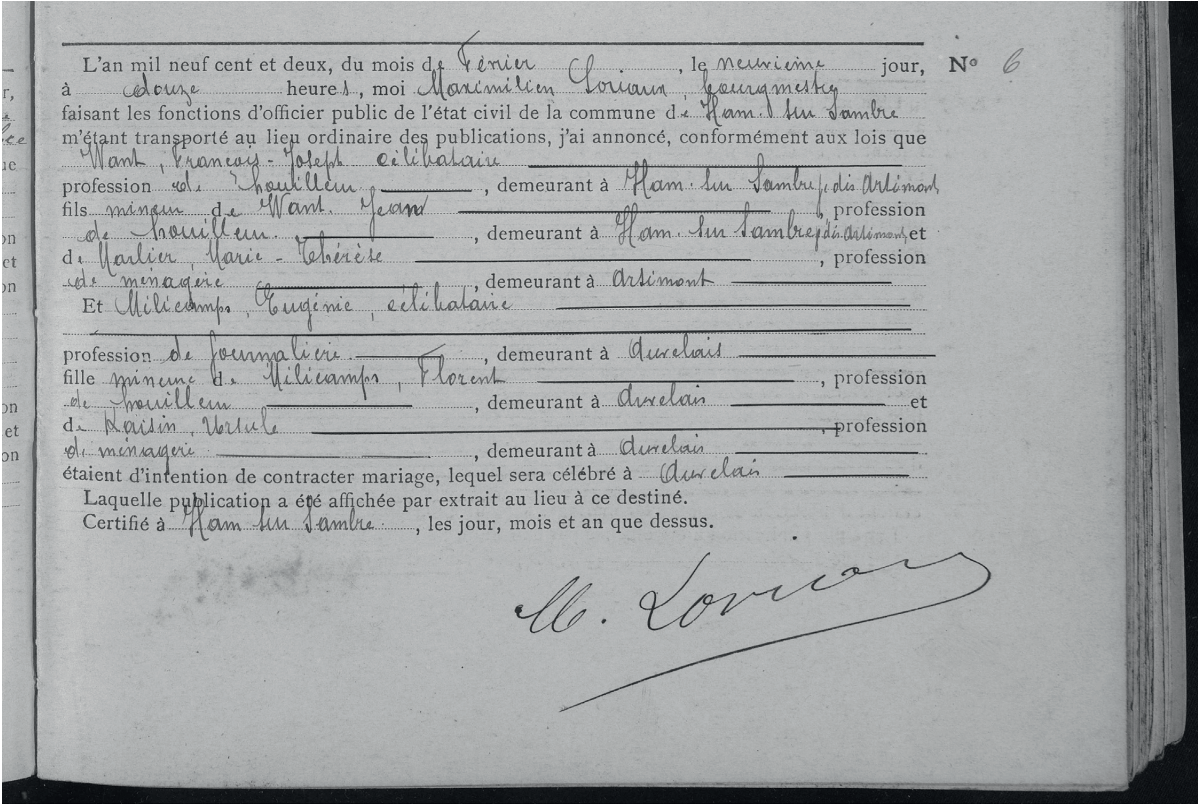 L'an mil neuf cent et deux, du mois de Février, le neuvième jour, Nº 6
à douze heures, moi Maximilien Loriaux, bourgmestre
faisant les fonctions d'officier public de l'état civil de la commune de Ham-sur-Sambre
m'étant transporté au lieu ordinaire des publications, j'ai annoncé, conformément aux lois que
Want, François-Joseph célibataire
profession de houilleur, demeurant à Ham-sur-Sambre, dis Arsimont,
fils mineur de Want, Jean, profession
de houilleur, demeurant à Ham-sur-Sambre, dis Arsimont, et
de Marlier, Marie-Thérèse, profession
de ménagère, demeurant à Arsimont
Et Milicamps, Eugénie, célibataire
profession de journalière, demeurant à Auvelais
fille mineure de Milicamps, Florent, profession
de houilleur, demeurant à Auvelais et
de Raisin, Ursule, profession
de ménagère, demeurant à Auvelais
étaient d'intention de contracter mariage, lequel sera célébré à Auvelais
Laquelle publication a été affichée par extrait au lieu à ce destiné.
Certifié à Ham-sur-Sambre, les jour, mois et an que dessus.
M. Loriaux